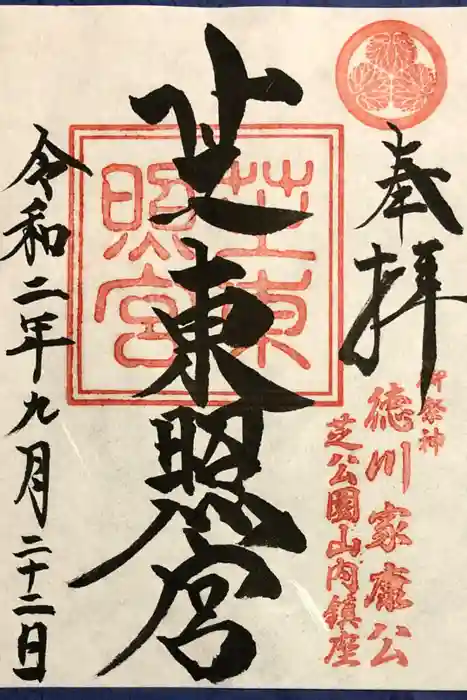 奉拝
御祭神
徳川家康公
芝公園山内鎮座
芝東照宮
芝東照宮
令和二年九月二十二日